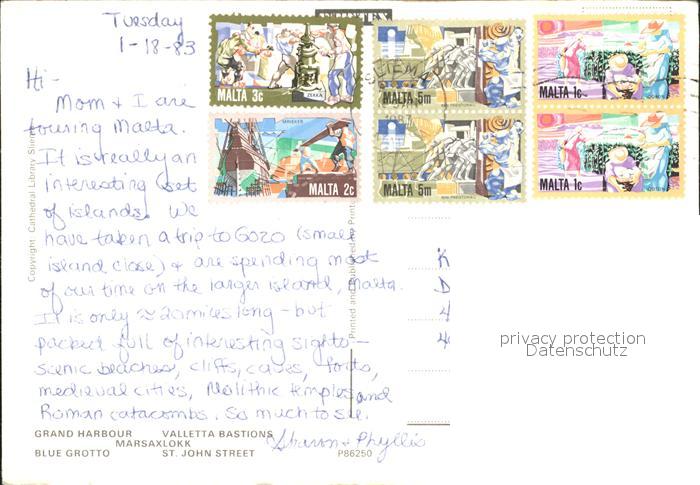 Tuesday
1-18-83
Hi -
Mom + I are
touring Malta.
It is really an
interesting set
of islands. We
have taken a trip to Gozo (small
island close) + are spending most
of our time on the larger island, Malta.
It is only ≈ 20 miles long - but
packed full of interesting sights -
scenic beaches, cliffs, caves, forts,
medieval cities, Neolithic temples and
Roman catacombs. So much to see.
Sharon + Phyllis
GRAND HARBOUR VALLETTA BASTIONS
MARSAXLOKK
BLUE GROTTO ST. JOHN STREET P86250
Copyright Cathedral Library
Printed and Published by
MALTA 3c
ZEKKA
MALTA 2c
MALTA 5m
MALTA 5m
MALTA 1c
MALTA 1c
K
D
4
4
privacy protection
Datenschutz